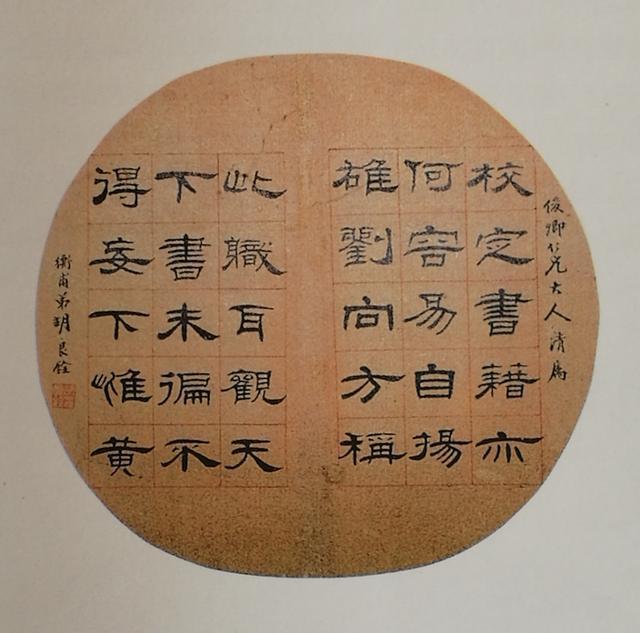 俊卿仁兄大人清属
校定書藉亦
何容易自揚
雄劉向方稱
此職耳觀天
下書未徧不
得妄下惟黄
衡甫弟胡良銓